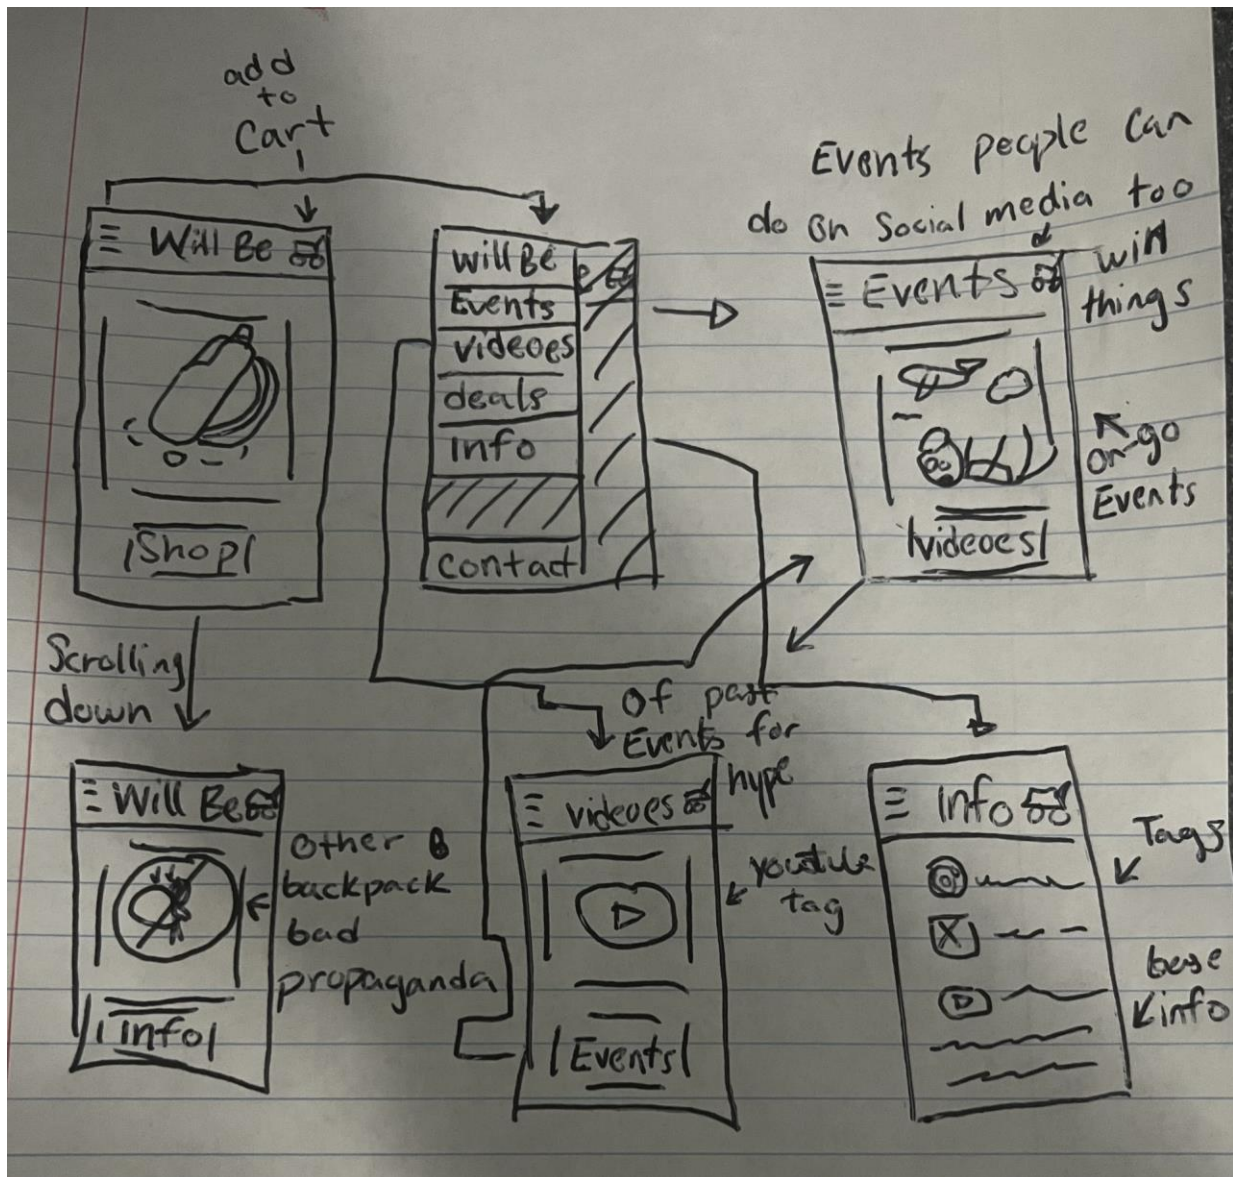 add
to
Cart
Will Be
Shop
Scrolling
down
will Be
Events
videoes
deals
info
contact
Events people can
do on social media too
win
things
Events
videoes
on-go
Events
Will Be
info
other
backpack
bad
propaganda
Of past
Events for
hype
videoes
youtube
tag
Events
info
Tags
base
info